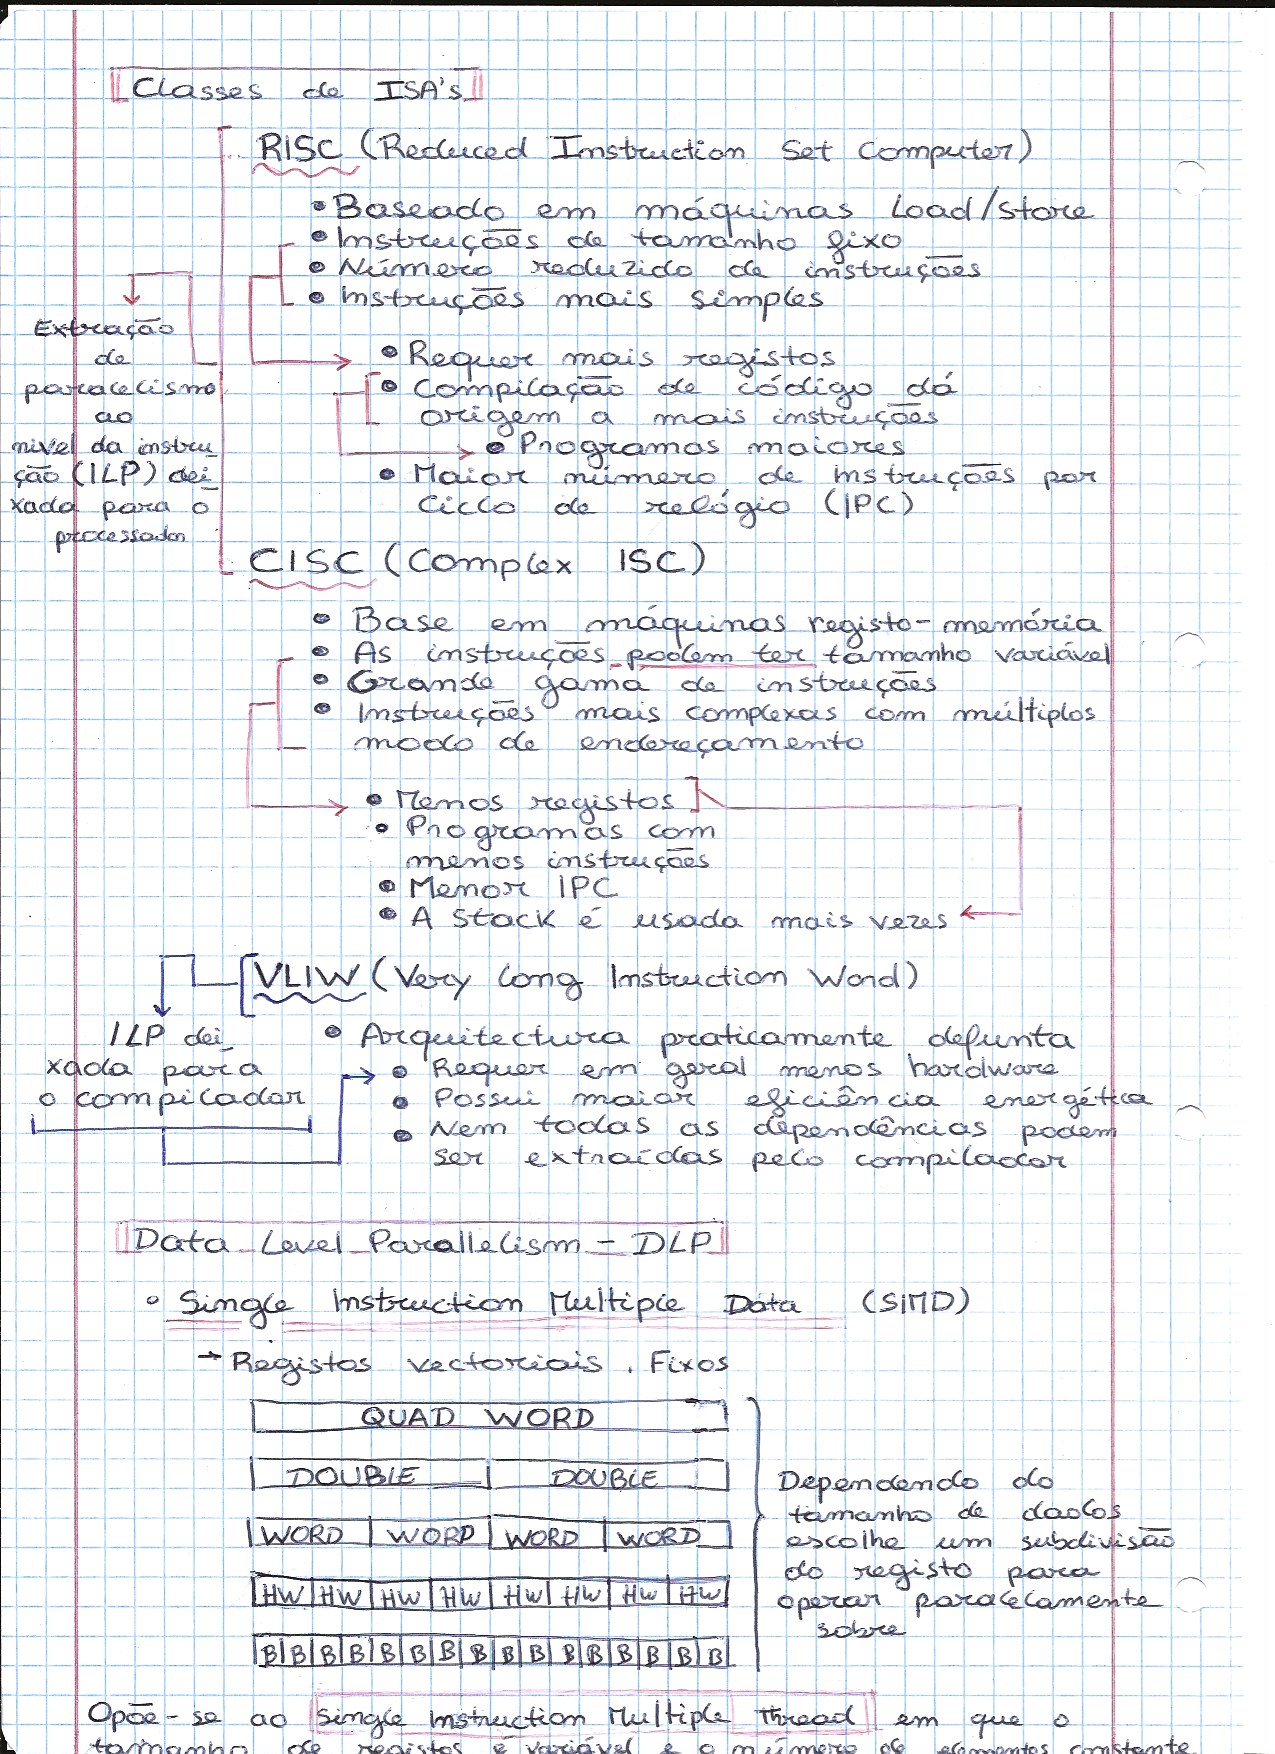 Classes de ISA's
RISC (Reduced Instruction Set Computer)
• Baseado em máquinas Load/Store
• Instruções de tamanho fixo
• Número reduzido de instruções
• Instruções mais simples
Extração
de
paralelismo
ao
nivel da instru_
ção (ILP) dei_
xada para o
processador
• Requer mais registos
• Compilação de código dá
origem a mais instruções
• Programas maiores
• Maior número de instruções por
Ciclo de relógio (IPC)
CISC (Complex ISC)
• Base em máquinas registo-memória
• As instruções podem ter tamanho variável
• Grande gama de instruções
• Instruções mais complexas com múltiplos
modo de endereçamento
• Menos registos
• Programas com
menos instruções
• Menor IPC
• A Stack é usada mais vezes
VLIW (Very Long Instruction Word)
ILP dei_
xada para
o compilador
• Arquitectura praticamente defunta
• Requer em geral menos hardware
• Possui maior eficiência energética
• Nem todas as dependências podem
ser extraídas pelo compilador
Data Level Parallelism - DLP
• Single Instruction Multiple Data (SIMD)
→ Registos vectoriais. Fixos
QUAD WORD
DOUBLE DOUBLE
WORD WORD WORD WORD
HW HW HW HW HW HW HW HW
B B B B B B B B B B B B B B B B
Dependendo do
tamanho de dados
escolhe um subdivisão
do registo para
operar paralelamente
sobre
Opõe-se ao Single Instruction Multiple Thread em que o
tamanho de registos é variável e o número de elementos constante